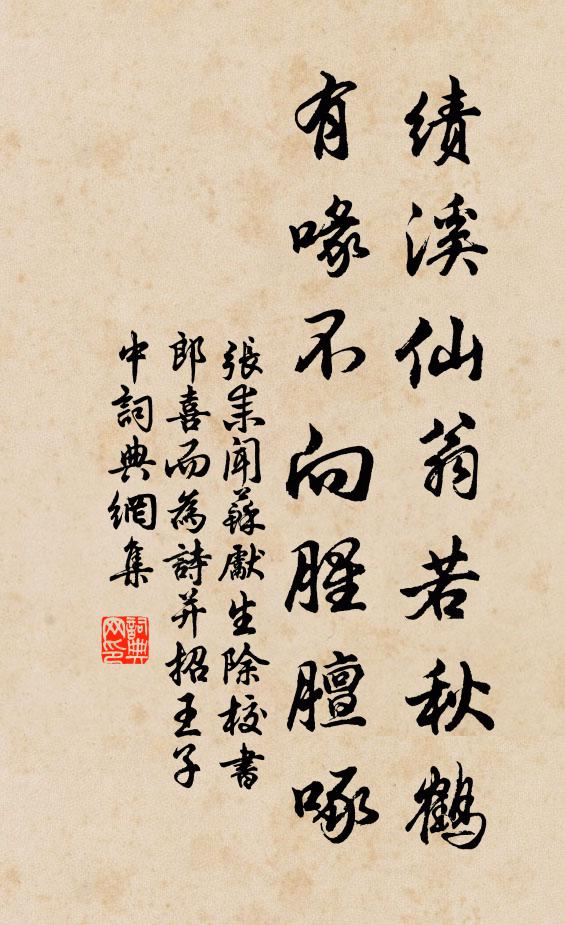 績溪仙翁若秋鶴
有喙不向腥膻啄
張耒聞蘇獻生除校書
郎喜而為詩并招王子
中詞典網集
詞典
网印